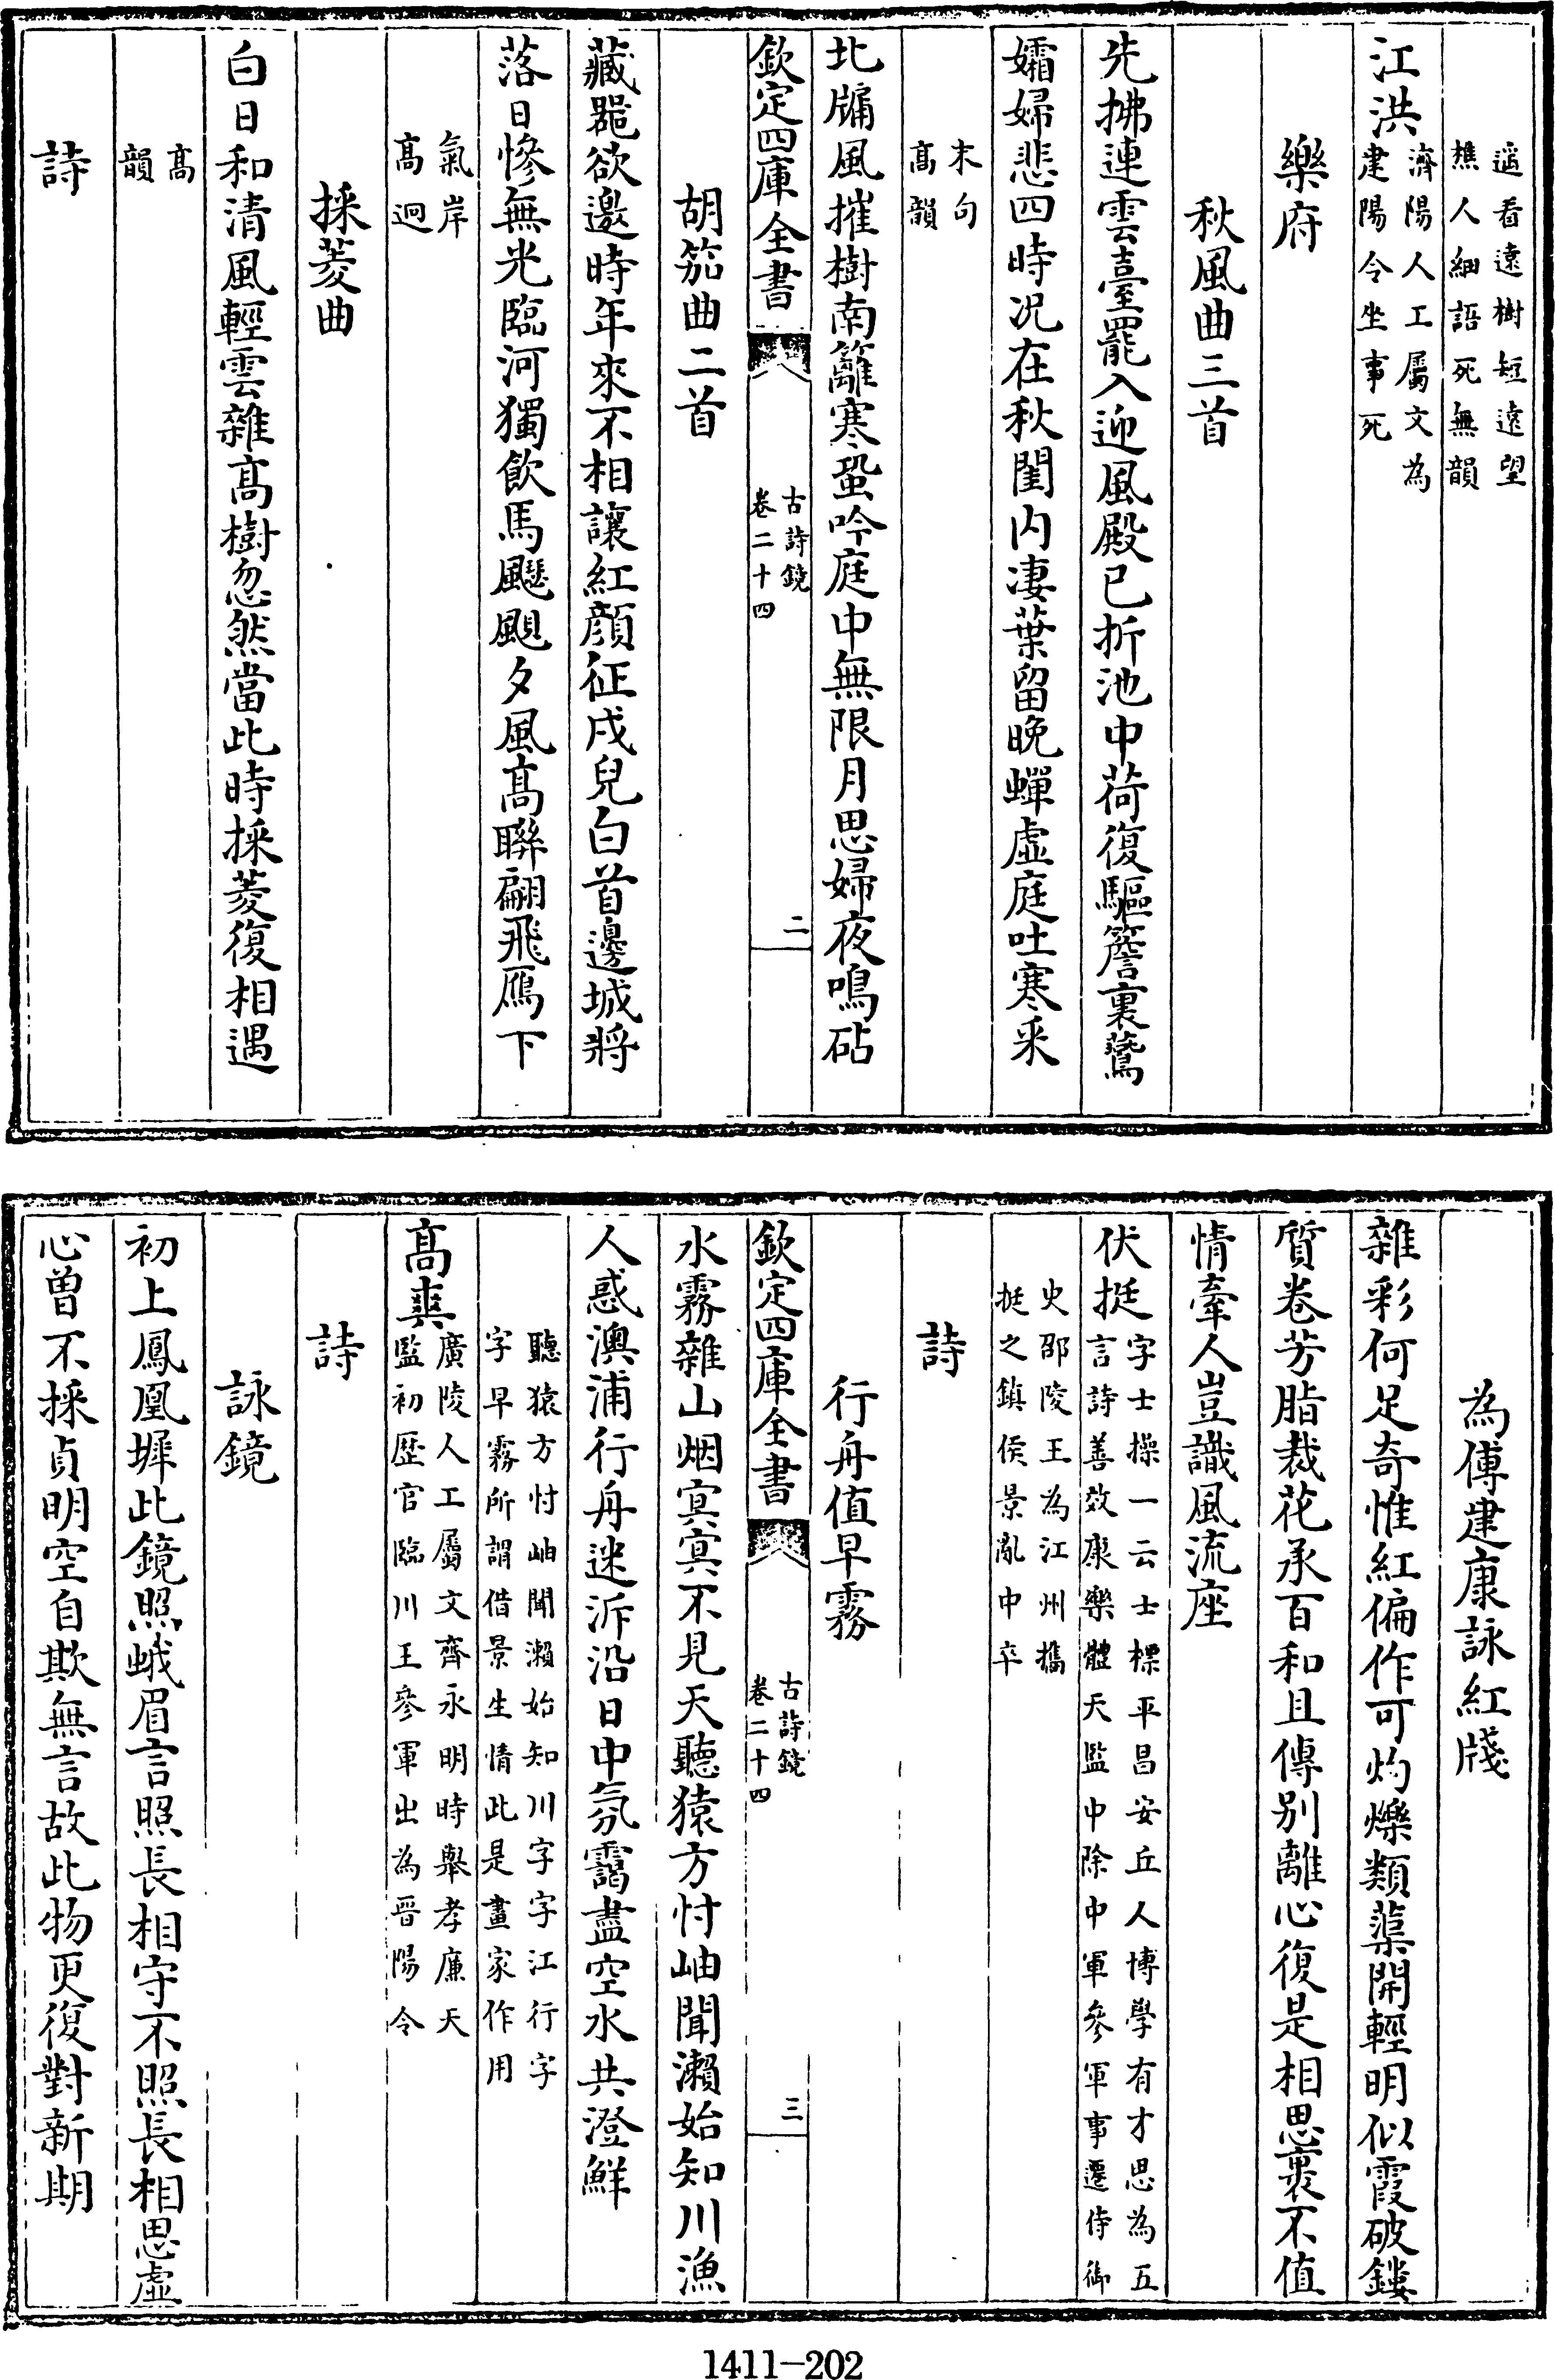 遥看遠樹短遠望
樵人細語死無韻
江洪
濟陽人工屬文為
建陽令坐事死
樂府
秋風曲三首
先拂連雲臺罷入迎風殿已折池中荷復驅簷裏鷰
孀婦悲四時况在秋閨内凄葉留晚蟬虚庭吐寒采
末句
髙韻
北牖風摧樹南籬寒蛩吟庭中無限月思婦夜鳴砧
欽定四庫全書
古詩鏡
卷二十四
二
胡笳曲二首
藏器欲邀時年來不相讓紅顔征戍兒白首邊城將
落日慘無光臨河獨飲馬飋颶夕風髙聯翩飛鴈下
氣岸
髙迥
採菱曲
白日和清風輕雲雜髙樹忽然當此時採菱復相遇
髙
韻
詩
為傅建康詠紅牋
雜彩何足奇惟紅偏作可灼爍類蕖開輕明似霞破鏤
質卷芳脂裁花承百和且傳别離心復是相思裹不值
情牽人豈識風流座
伏挺
字士操一云士標平昌安丘人博學有才思為五
言詩善效康樂體天監中除中軍參軍事遷侍御
史邵陵王為江州擕
挺之鎮侯景亂中卒
詩
行舟值早霧
欽定四庫全書
古詩鏡
卷二十四
三
水霧雜山烟冥冥不見天聽猿方忖岫聞瀨始知川漁
人惑澳浦行舟迷泝沿日中氛靄盡空水共澄鮮
聽猿方忖岫聞瀨始知川字字江行字
字早霧所謂借景生情此是畫家作用
髙爽
廣陵人工屬文齊永明時舉孝廉天
監初歴官臨川王參軍出為晋陽令
詩
詠鏡
初上鳳凰墀此鏡照蛾眉言照長相守不照長相思虚
心曽不採貞明空自欺無言故此物更復對新期
1411-202